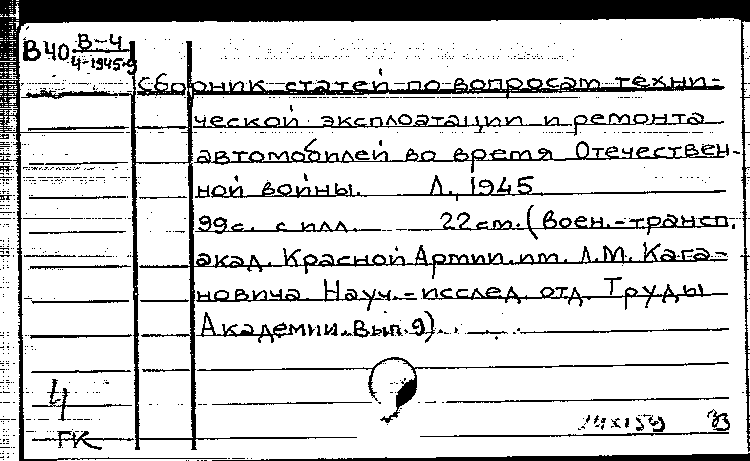 В40 В-4
4-1945.9
Сборник статей по вопросам техни-
ческой эксплоатации и ремонта
автомобилей во время Отечествен-
ной войны. Л., 1945
99с. с илл. 22 см. (Воен.-трансп.
акад. Красной Армии им. Л.М. Кага-
новича. Науч.-исслед. отд. Труды
Академии. Вып. 9).
Ч
ГК